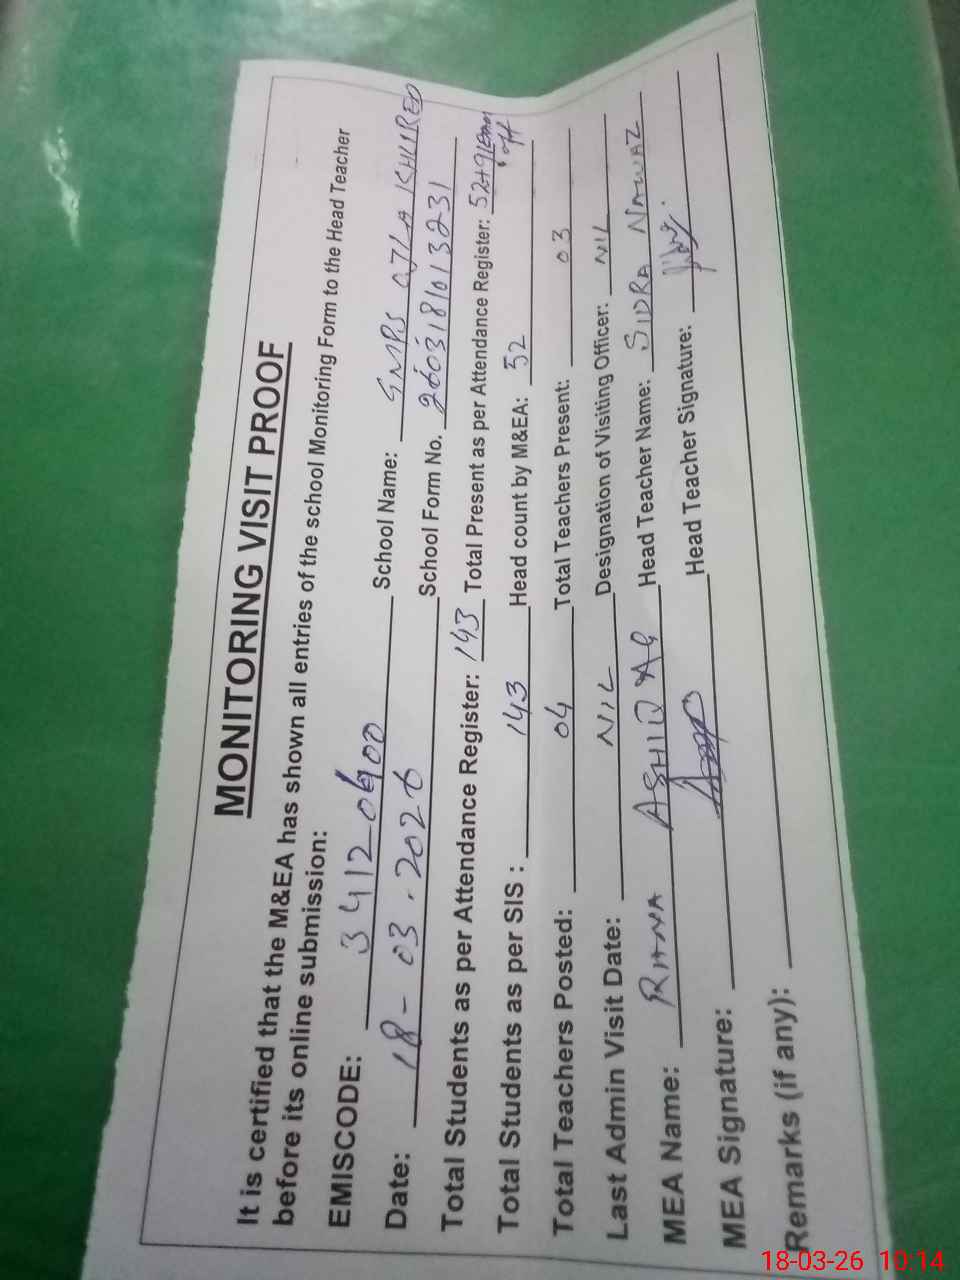 MONITORING VISIT PROOF
It is certified that the M&EA has shown all entries of the school Monitoring Form to the Head Teacher
before its online submission:
EMISCODE: 34120600 School Name: GMPS QILA KHURED
Date: 18-03.2026 School Form No. 260318101323 1
Total Students as per Attendance Register: 143 Total Present as per Attendance Register: 52+91 off
Total Students as per SIS : 143 Head count by M&EA: 52
Total Teachers Posted: 04 Total Teachers Present: 03
Last Admin Visit Date: NIL Designation of Visiting Officer: NIL
MEA Name: RANA ASHIQ Head Teacher Name: SIDRA NAWAZ
MEA Signature: Head Teacher Signature:
Remarks (if any):
18-03-26 10:14